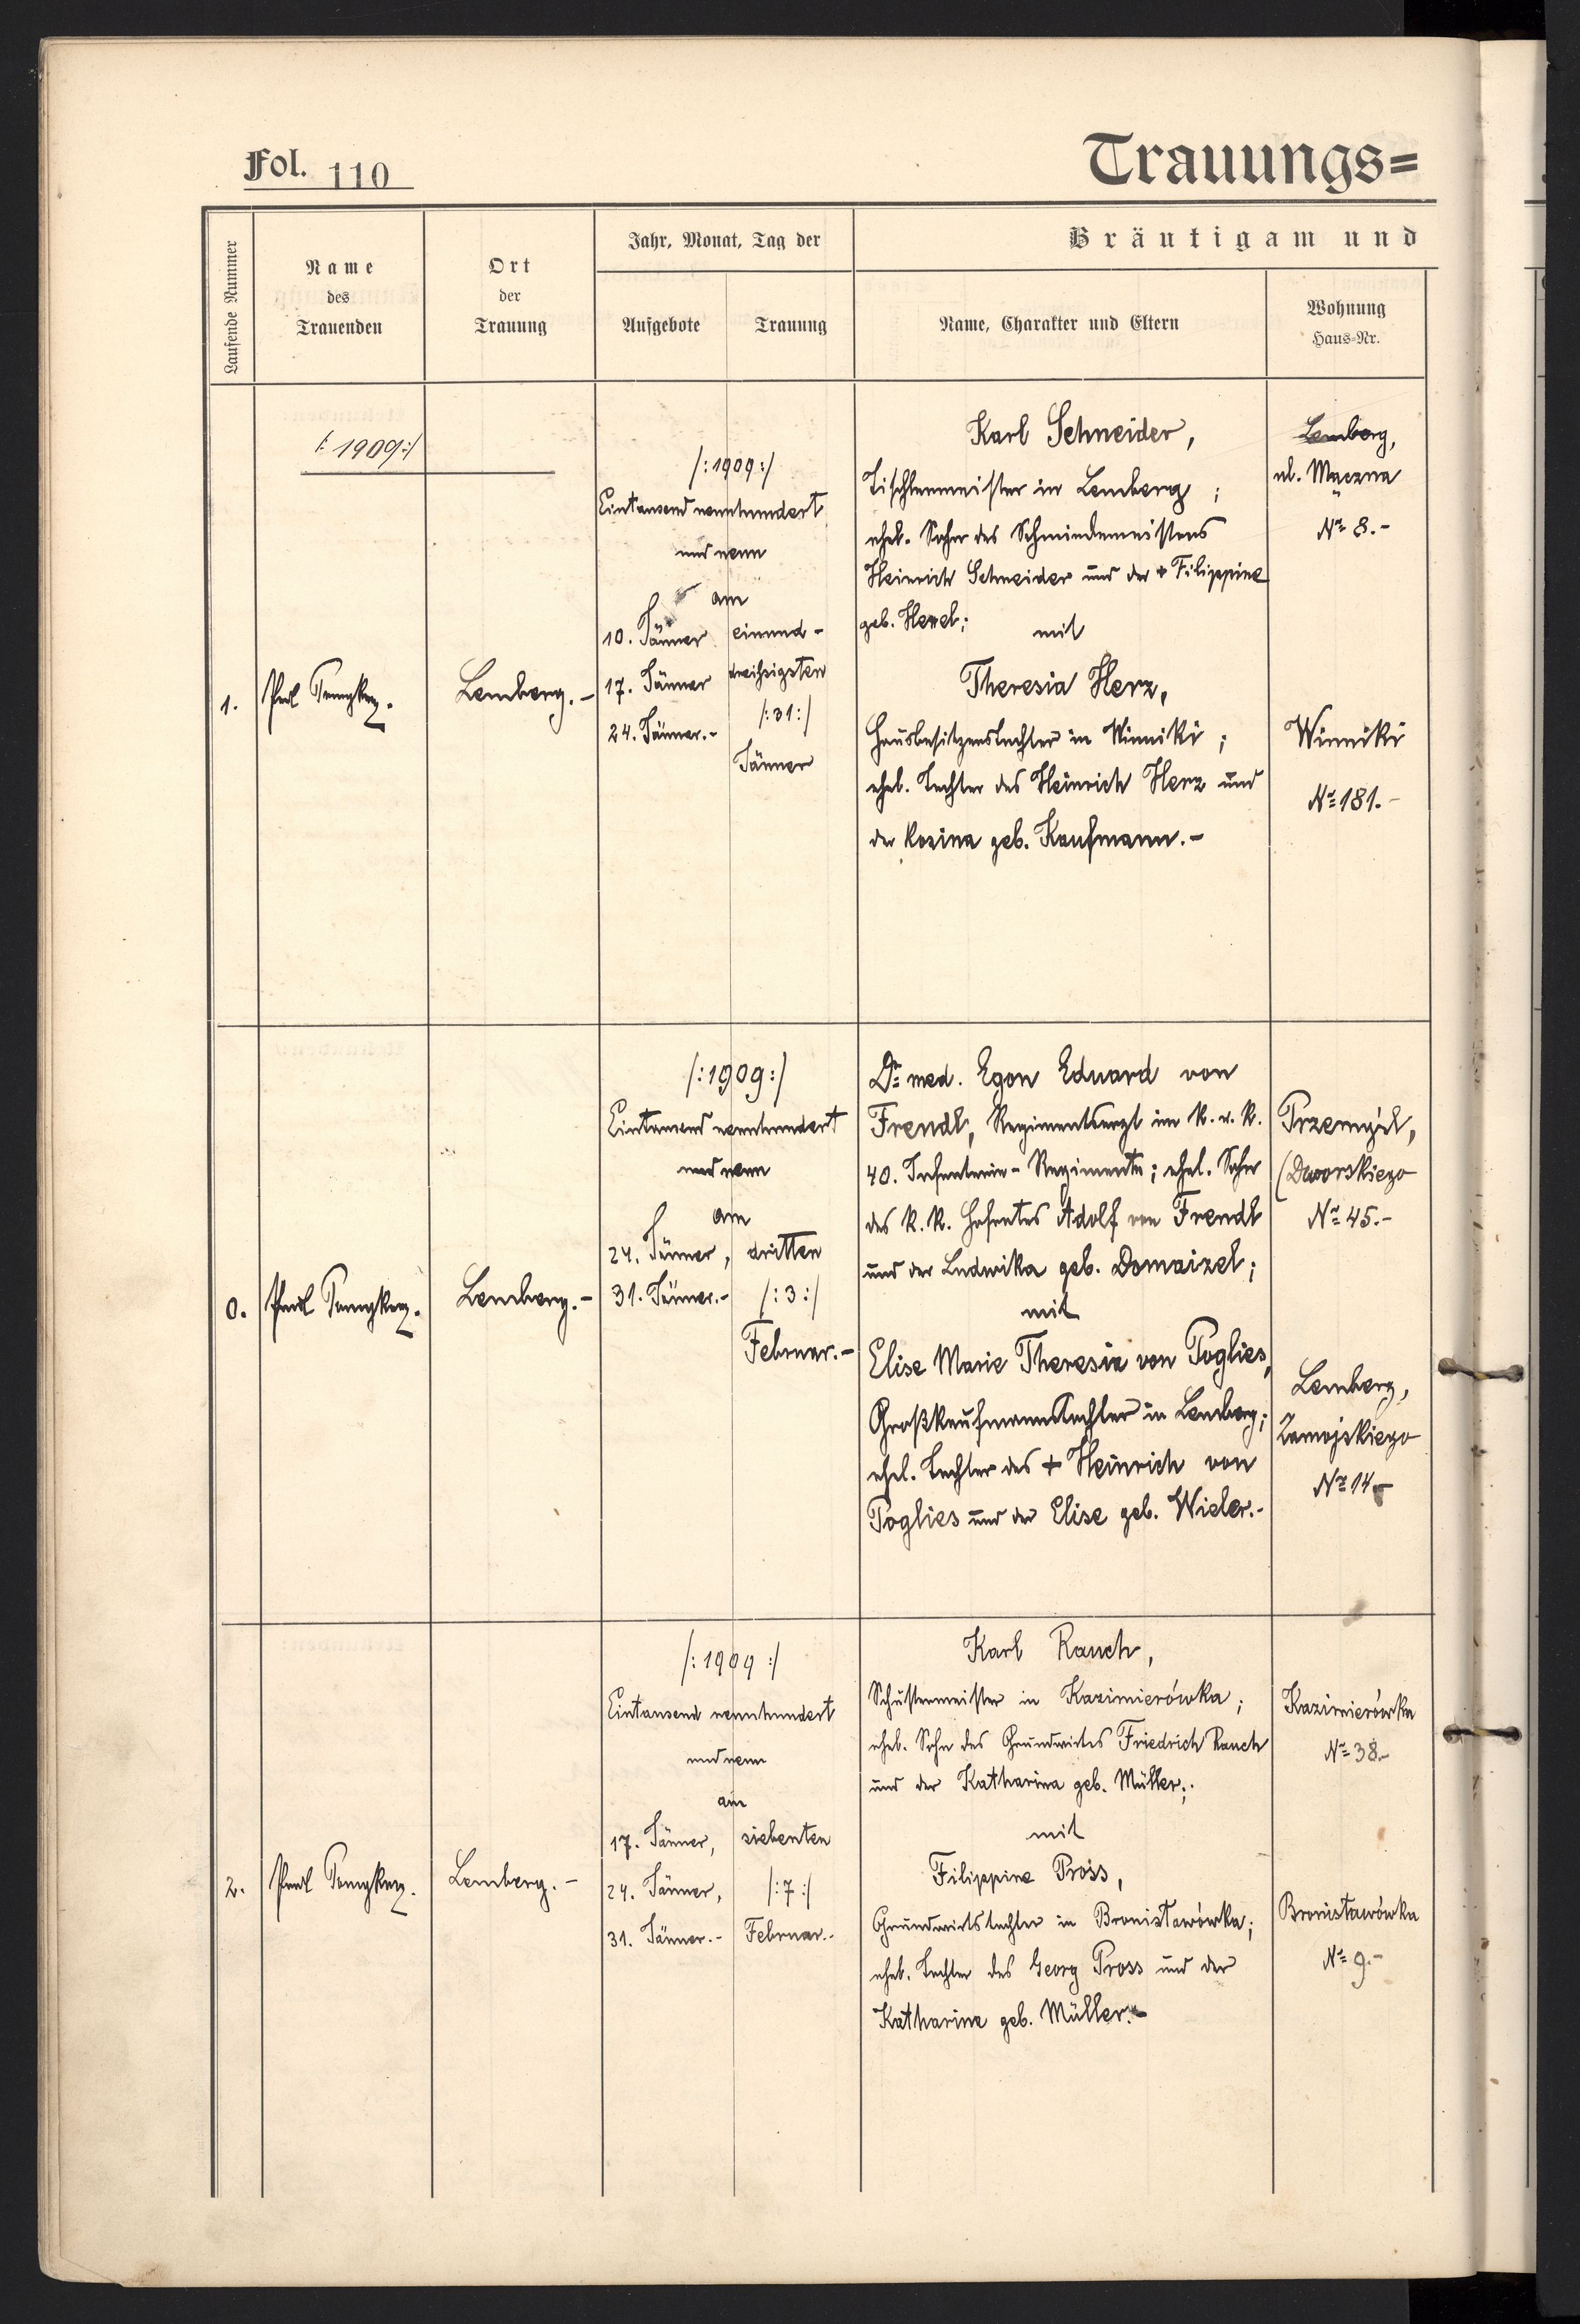 Fol. 110
Trauungs=
Laufende Nummer
Name
des
Trauenden
Ort
der
Trauung
Jahr, Monat, Tag der
Aufgebote
Trauung
Bräutigam und
Name, Charakter und Eltern
Wohnung
Haus=Nr.
/:1909:/
1.
Lemberg.-
/:1909:/
Eintausend neunhundert
und neun
am
10. Jänner
17. Jänner
24. Jänner.-
einund-
dreißigsten
/:31:/
Jänner
Karl Schneider,
Tischlermeister in Lemberg;
ehel. Sohn des Schmiedemeisters
Heinrich Schneider und der + Filippine
geb.
mit
Theresia Herz,
Hausbesitzerstochter in Winniki;
ehel. Tochter des Heinrich Herz und
der Rosina geb. Kaufmann.-
Lemberg,
ul. Mączna
Nr. 8.-
Winniki
Nr. 181.-
0.
Lemberg.-
/:1909:/
Eintausend neunhundert
und neun
am
24. Jänner,
31. Jänner.-
dritten
/:3:/
Februar.-
Dr. med. Egon Eduard von
Frendl, Regimentsarzt im k. u. k.
40. Infanterie-Regimente; ehel. Sohn
des k. k. Hofrates Adolf von Frendl
und der Ludwika geb. Domaizel;
mit
Elise Marie Theresia von Poglies,
Großkaufmannstochter in Lemberg;
ehel. Tochter des + Heinrich von
Poglies und der Elise geb. Wieler.-
Przemyśl,
(Dworskiego
Nr. 45.-
Lemberg,
Zamojskiego
Nr. 14.-
2.
Lemberg.-
/:1909:/
Eintausend neunhundert
und neun
am
17. Jänner,
24. Jänner,
31. Jänner.-
siebenten
/:7:/
Februar.-
Karl Rauch,
Schustermeister in Kazimierówka;
ehel. Sohn des Grundwirtes Friedrich Rauch
und der Katharina geb. Müller;
mit
Filippine Pross,
Grundwirtstochter in Bronisławówka;
ehel. Tochter des Georg Pross und der
Katharine geb. Müller.-
Kazimierówka
Nr. 38.-
Bronisławówka
Nr. 9.-